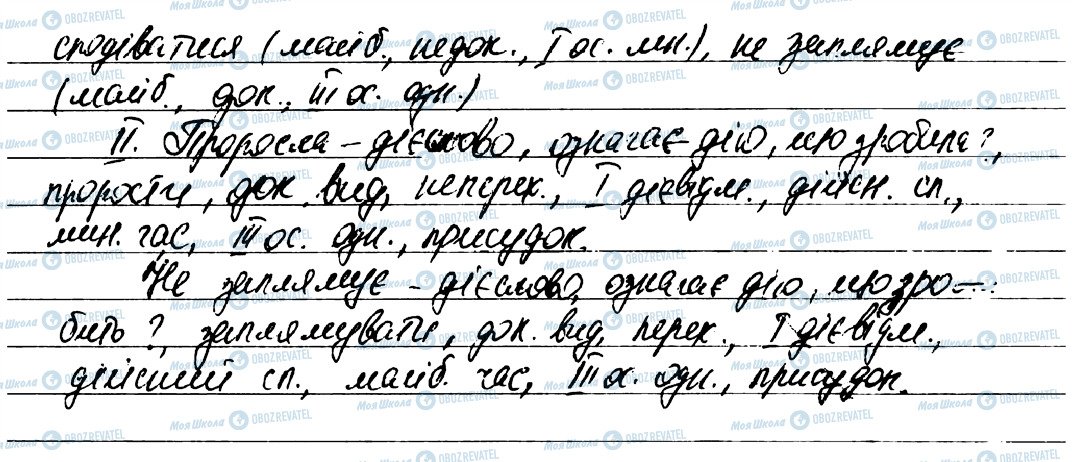 сподіватися (майб., недок., I ос. мн.), не заплямує
(майб., док., III ос. одн.)
II. Проросла – дієслово, означає дію, що зробила?,
прорости, док. вид, неперех., I дієвідм., дійсн. сп.,
мин. час, III ос. одн., присудок.
Не заплямує – дієслово, означає дію, що зро-
бить?, заплямувати, док. вид, перех., I дієвідм.,
дійсний сп., майб. час, III ос. одн., присудок.